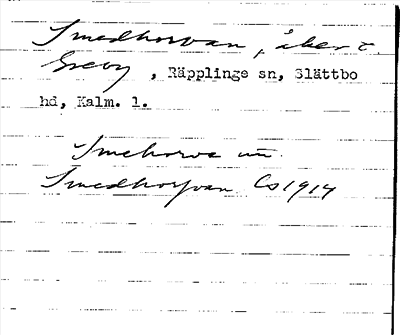 Smedhorvan, åker t.
Greby, Räpplinge sn, Slättbo
hd, Kalm. l.
Smehorva un.
Smedhorfvan Cs 1914